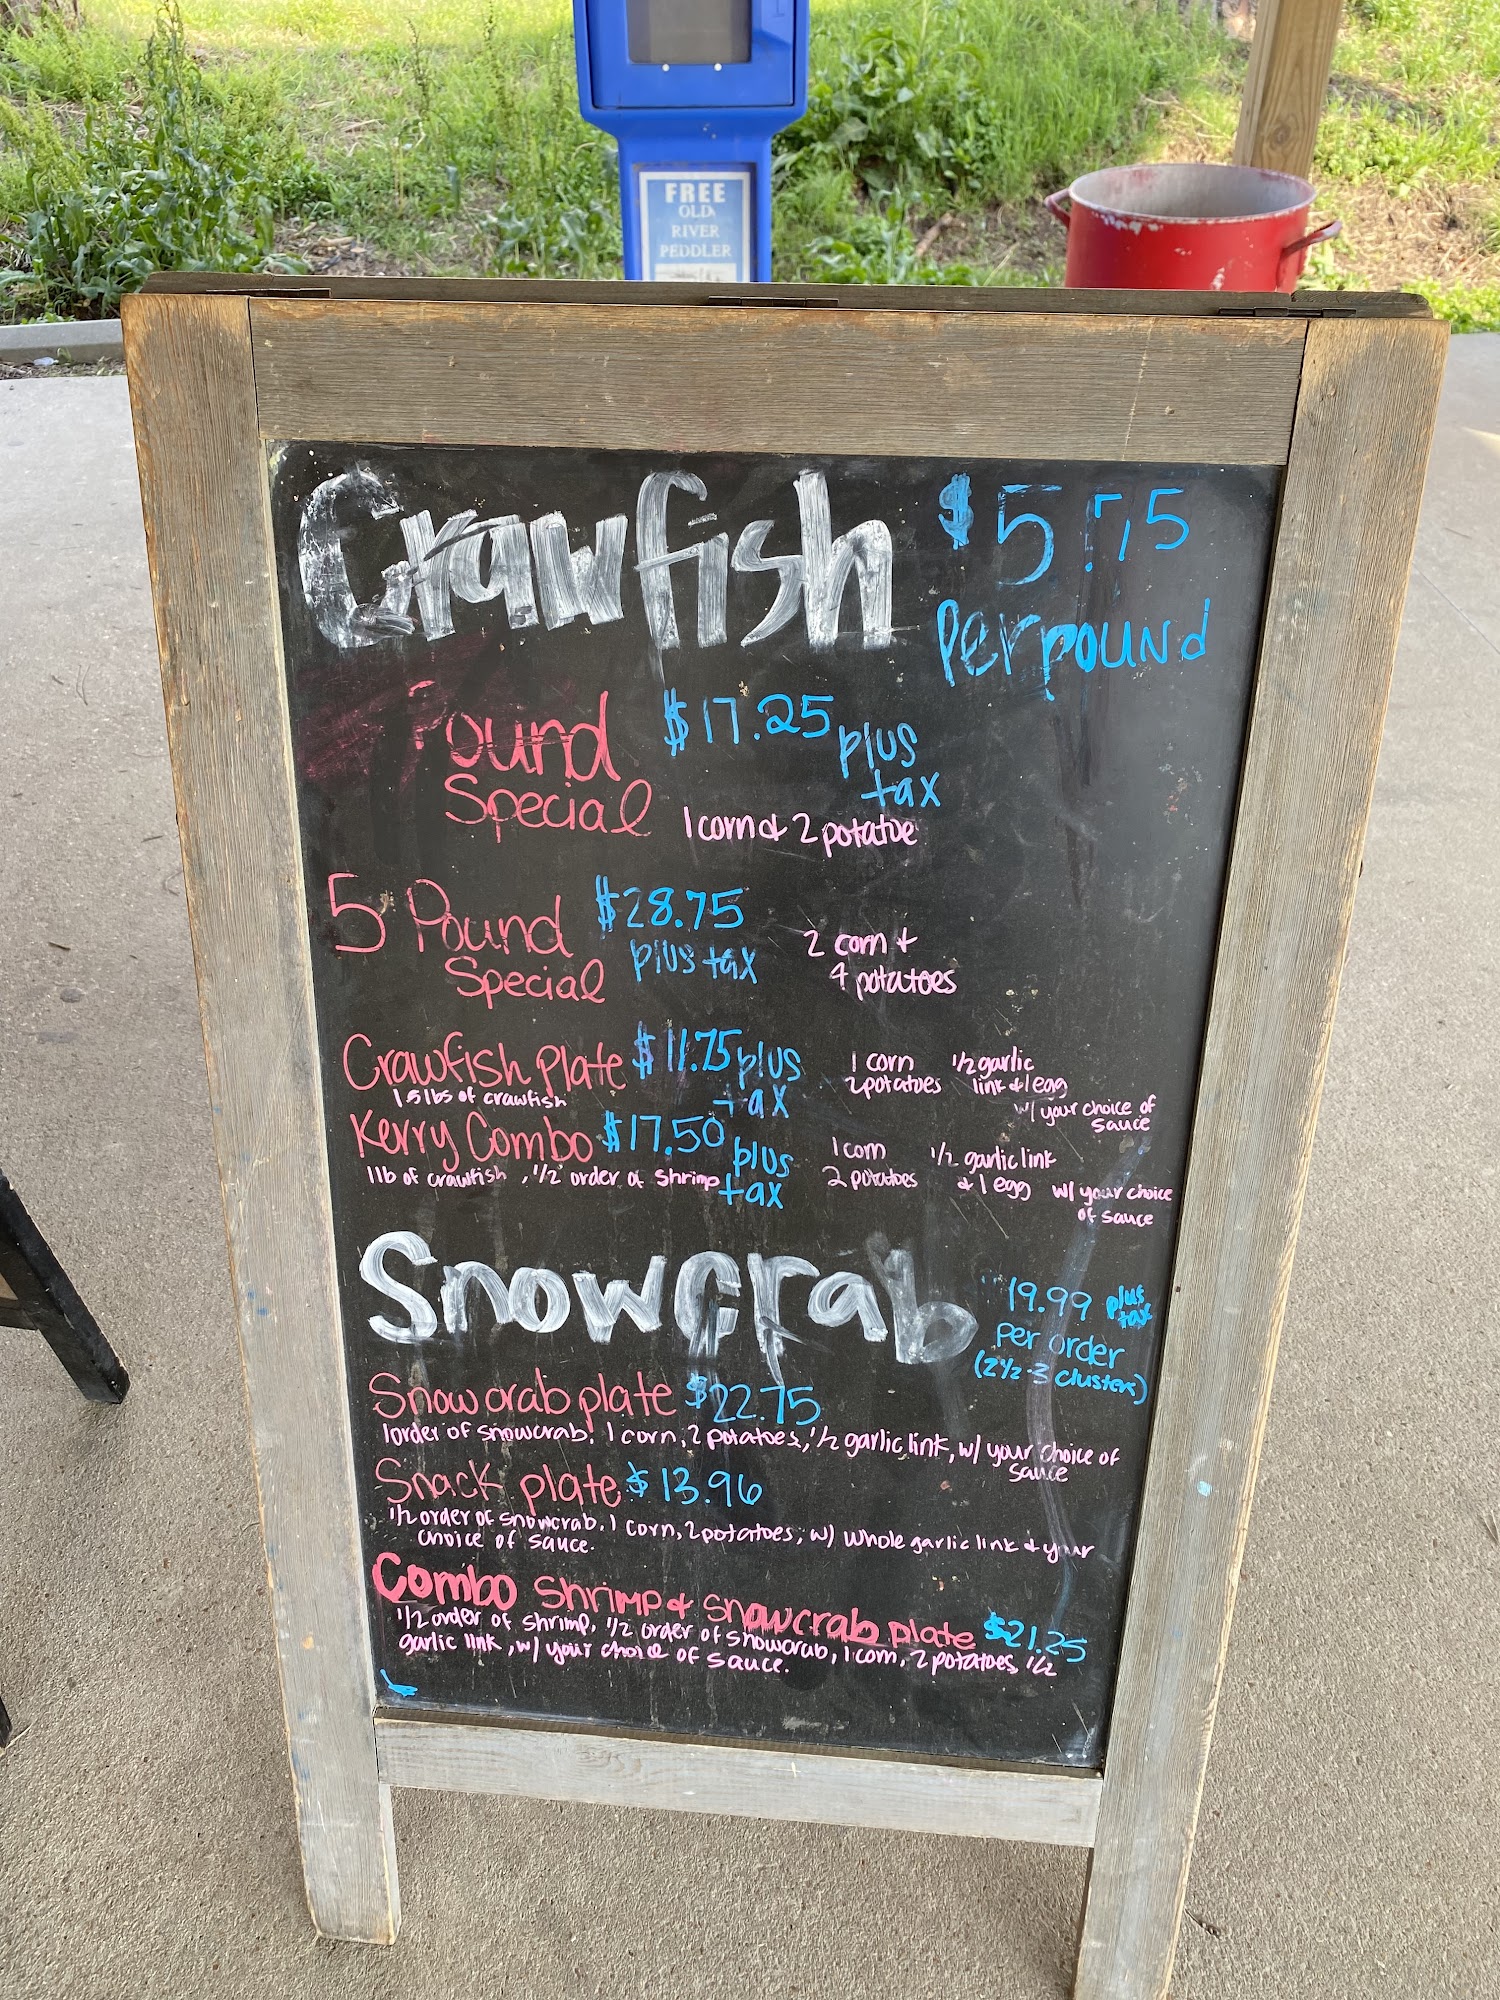 FREE
OLD
RIVER
PEDDLER
Crawfish $5.75
Per pound
Pound $17.25 plus
Special tax
1 corn & 2 potatoe
5 Pound $28.75
Special plus tax
2 corn &
4 potatoes
Crawfish Plate $11.75 plus
tax
1.5 lbs of crawfish
1 corn 1/2 garlic
2 potatoes link & 1 egg
w/ your choice of
sauce
Kerry Combo $17.50 plus
tax
1 lb of crawfish, 1/2 order of shrimp
1 corn 1/2 garlic link
2 potatoes & 1 egg w/ your choice
of sauce
Snowcrab 19.99 plus
tax
per order
(2 1/2-3 clusters)
Snowcrab plate $22.75
1 order of snowcrab, 1 corn, 2 potatoes, 1/2 garlic link, w/ your choice of
sauce
Snack plate $13.96
1/2 order of snowcrab, 1 corn, 2 potatoes, w/ whole garlic link & your
choice of sauce.
Combo Shrimp & Snowcrab plate $21.25
1/2 order of shrimp, 1/2 order of snowcrab, 1 corn, 2 potatoes, 1/2
garlic link, w/ your choice of sauce.